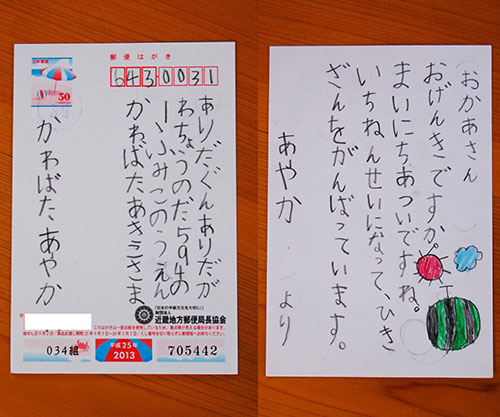 郵便はがき
643-0031
50
ありだぐんありだが
わちょうのだ594の
1ふみこのうえん
かわばたあきこさま
かわばたあやか
「日本の手紙文化を大切に!」
財団法人
近畿地方郵便局長協会
034組
平成25年
2013
705442
おかあさん
おげんきですか。
まいにちあついですね。
いちねんせいになって、ひき
ざんをがんばっています。
あやかより